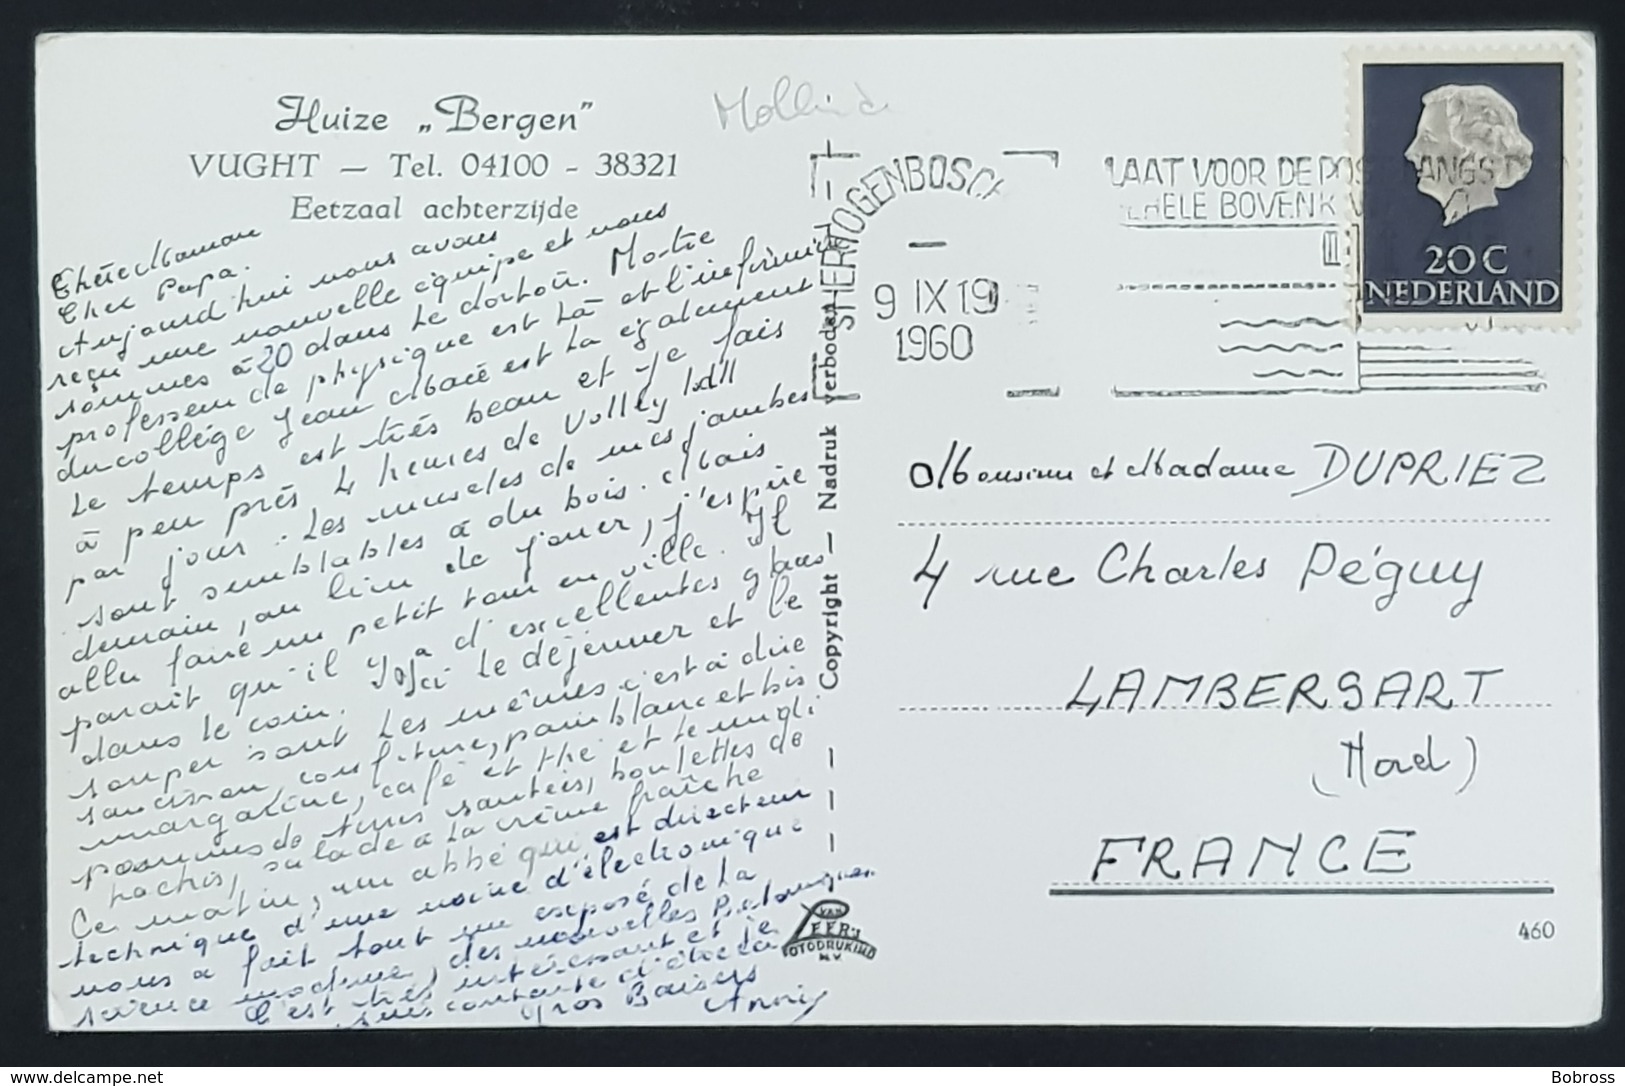 Huize „Bergen"
VUGHT — Tel. 04100 - 38321
Eetzaal achterzijde
Chère Maman
Cher Papa.
Aujourd'hui nous avons
reçu une nouvelle équipe et nous
sommes à 20 dans le dortoir. Notre
professeur de physique est là et l'infirmière
du collège Jean Macé est là également
Le temps est très beau et je fais
à peu près 4 heures de Volley ball
par jour. Les muscles de mes jambes
sont semblables à du bois. Mais
demain, au lieu de jouer, j'espère
aller faire un petit tour en ville. Il
paraît qu'il y a d'excellentes glaces
dans le coin. Ici le déjeuner et le
souper sont les mêmes c'est à dire
saucisson, confiture, pain blanc et bis
margarine, café et thé et le midi
pommes de terres sautées, boulettes de
hachis, salade à la crème fraîche
Ce matin, un abbé qui est directeur
technique d'une usine d'électronique
nous a fait tout un exposé de la
science moderne, des nouvelles
C'est très intéressant et je
suis contente d'être là
Gros Baisers
Annie
S'HERTOGENBOSCH
9 IX 19
1960
LAAT VOOR DE POSTVANGST
BOVEN
20 C
NEDERLAND
Monsieur et Madame DUPRIEZ
4 rue Charles Péguy
LAMBERSART
(Nord)
FRANCE
Copyright — Nadruk verboden
VAN LEER'S
FOTODRUKIND
N.V.
460
Bobross